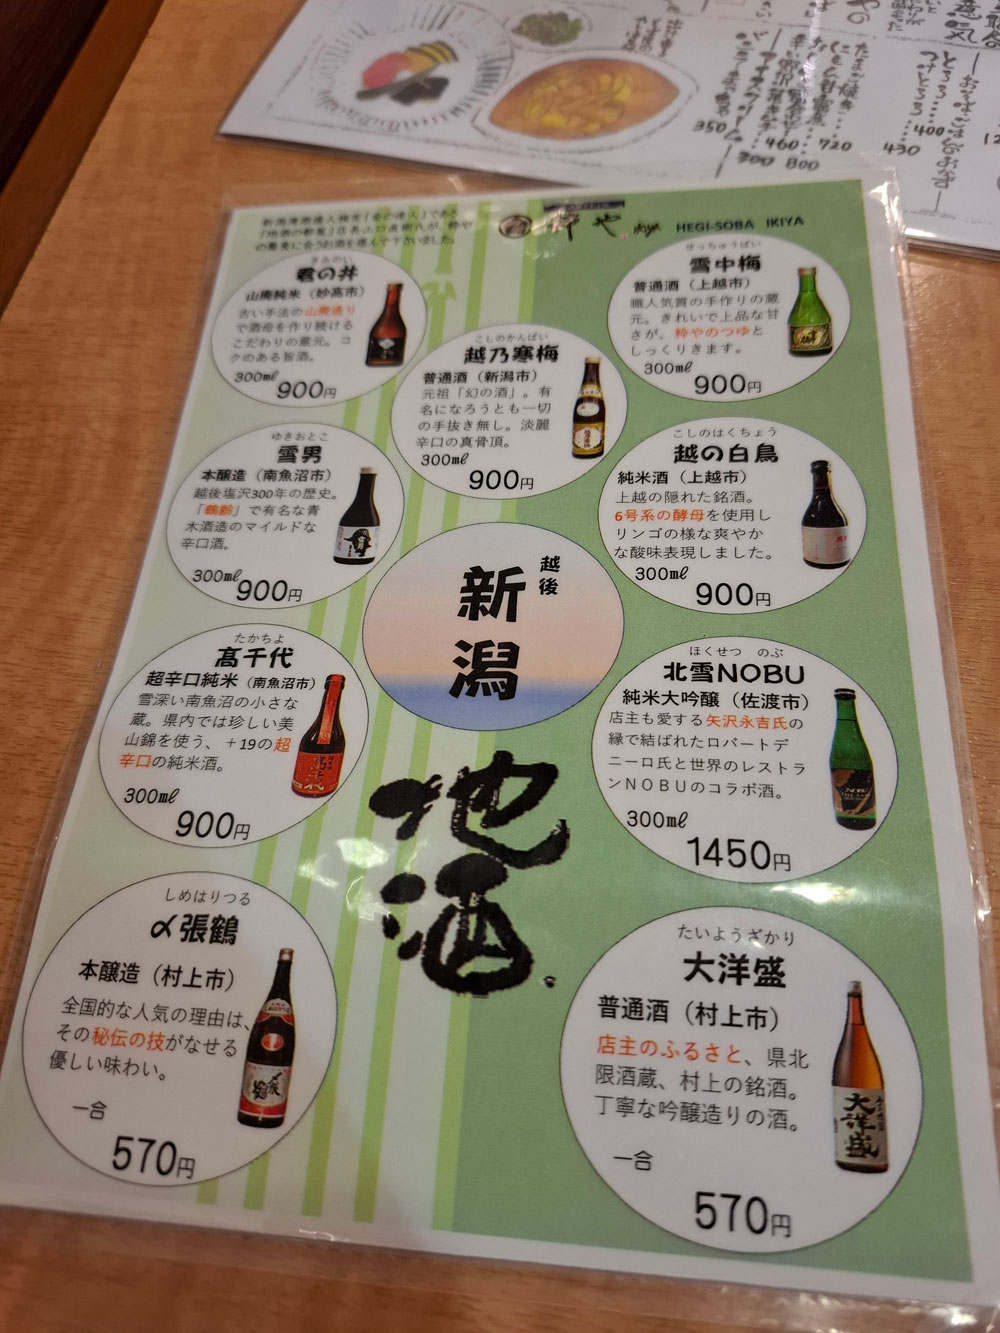 新潟清酒達人検定「金の達人」であり
「地酒の都屋」店長山口直樹氏が、粋や
の蕎麦に合うお酒を選んで下さいました。
粋や
HEGI-SOBA IKIYA
きみのい
君の井
山廃純米（妙高市）
古い手法の山廃造り
で酒母を作り続ける
こだわりの蔵元。コ
クのある旨酒。
300㎖
900円
こしのかんばい
越乃寒梅
普通酒（新潟市）
元祖「幻の酒」。有
名になろうとも一切
の手抜き無し。淡麗
辛口の真骨頂。
300㎖
900円
せっちゅうばい
雪中梅
普通酒（上越市）
職人気質の手作りの蔵
元。きれいで上品な甘
さが、粋やのつゆと
しっくりきます。
300㎖
900円
ゆきおとこ
雪男
本醸造（南魚沼市）
越後塩沢300年の歴史。
「鶴齢」で有名な青
木酒造のマイルドな
辛口酒。
300㎖
900円
こしのはくちょう
越の白鳥
純米酒（上越市）
上越の隠れた銘酒。
6号系の酵母を使用し
リンゴの様な爽やか
な酸味表現しました。
300㎖
900円
越後
新潟
地酒
たかちよ
髙千代
超辛口純米（南魚沼市）
雪深い南魚沼の小さな
蔵。県内では珍しい美
山錦を使う、＋19の超
辛口の純米酒。
300㎖
900円
ほくせつ のぶ
北雪NOBU
純米大吟醸（佐渡市）
店主も愛する矢沢永吉氏の
縁で結ばれたロバートデ
ニーロ氏と世界のレストラ
ンNOBUのコラボ酒。
300㎖
1450円
しめはりつる
〆張鶴
本醸造（村上市）
全国的な人気の理由は、
その秘伝の技がなせる
優しい味わい。
一合
570円
たいようざかり
大洋盛
普通酒（村上市）
店主のふるさと、県北
限酒蔵、村上の銘酒。
丁寧な吟醸造りの酒。
一合
570円
大洋盛
NOBU
たまご焼き
350
460
300
800
720
430
とろろ
400